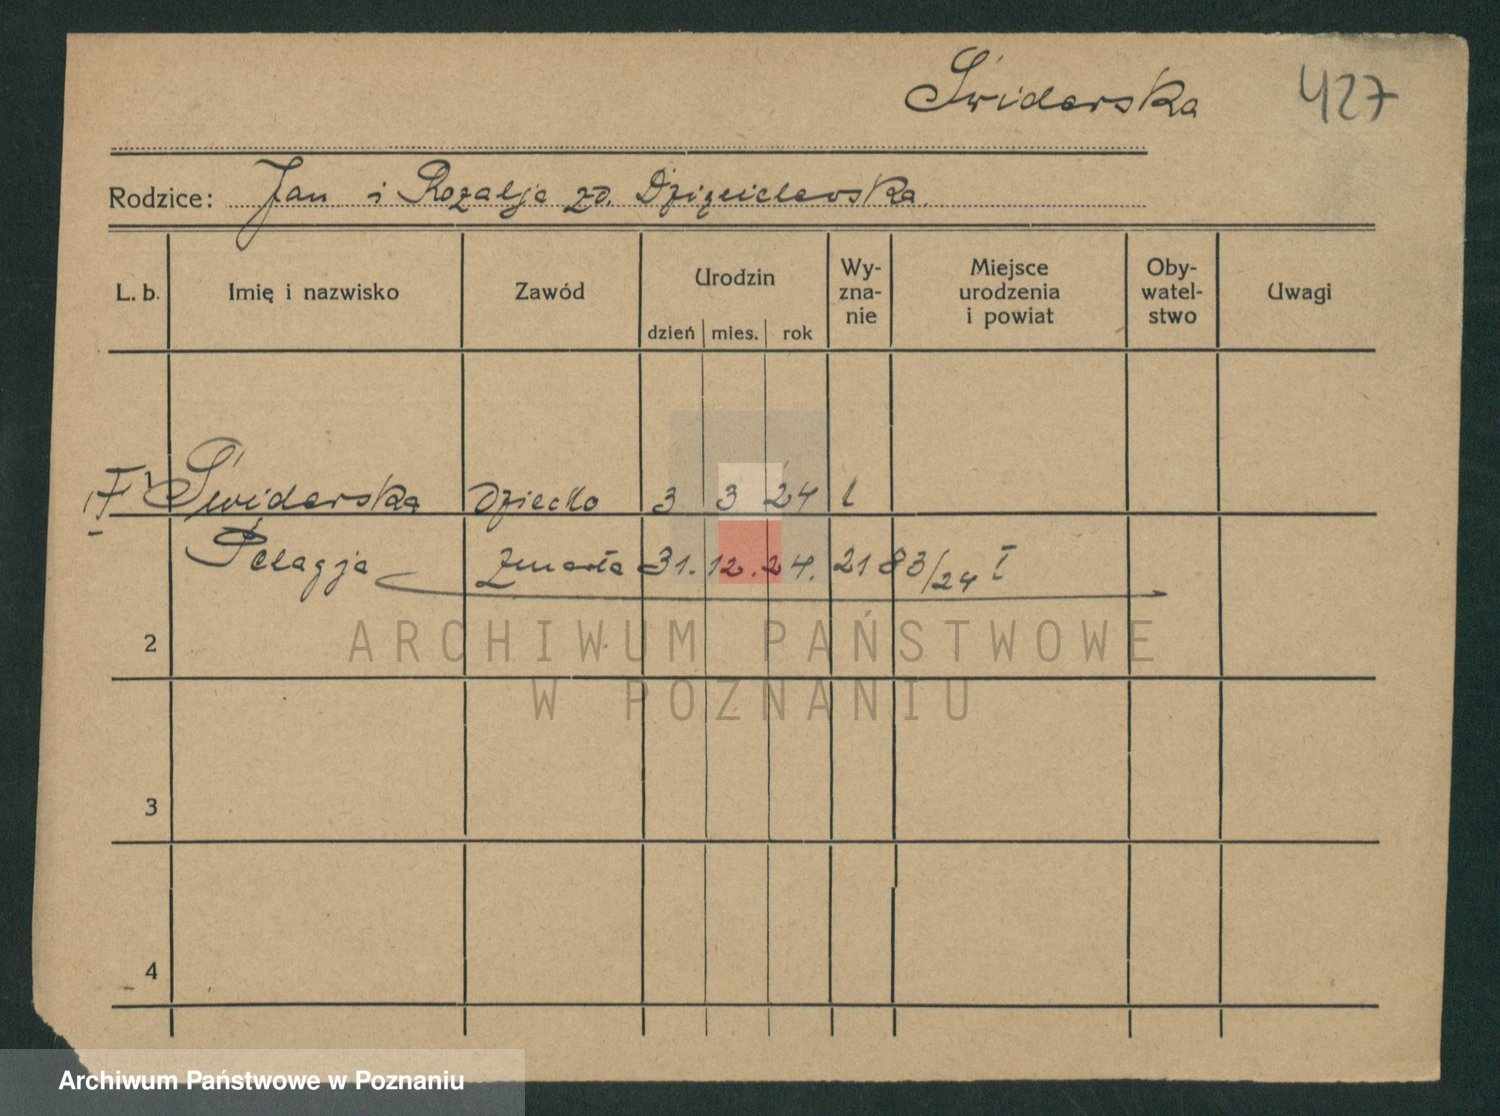 Świderska 427
Rodzice: Jan i Rozalja zd.
L. b. Imię i nazwisko Zawód Urodzin dzień mies. rok Wyznanie Miejsce urodzenia i powiat Obywatelstwo Uwagi
1 Świderska dziecko 3 3 24
Pelagja zmarła 31. 12. 24. 2183/24 I
2
3
4
ARCHIWUM PAŃSTWOWE
W POZNANIU
Archiwum Państwowe w Poznaniu